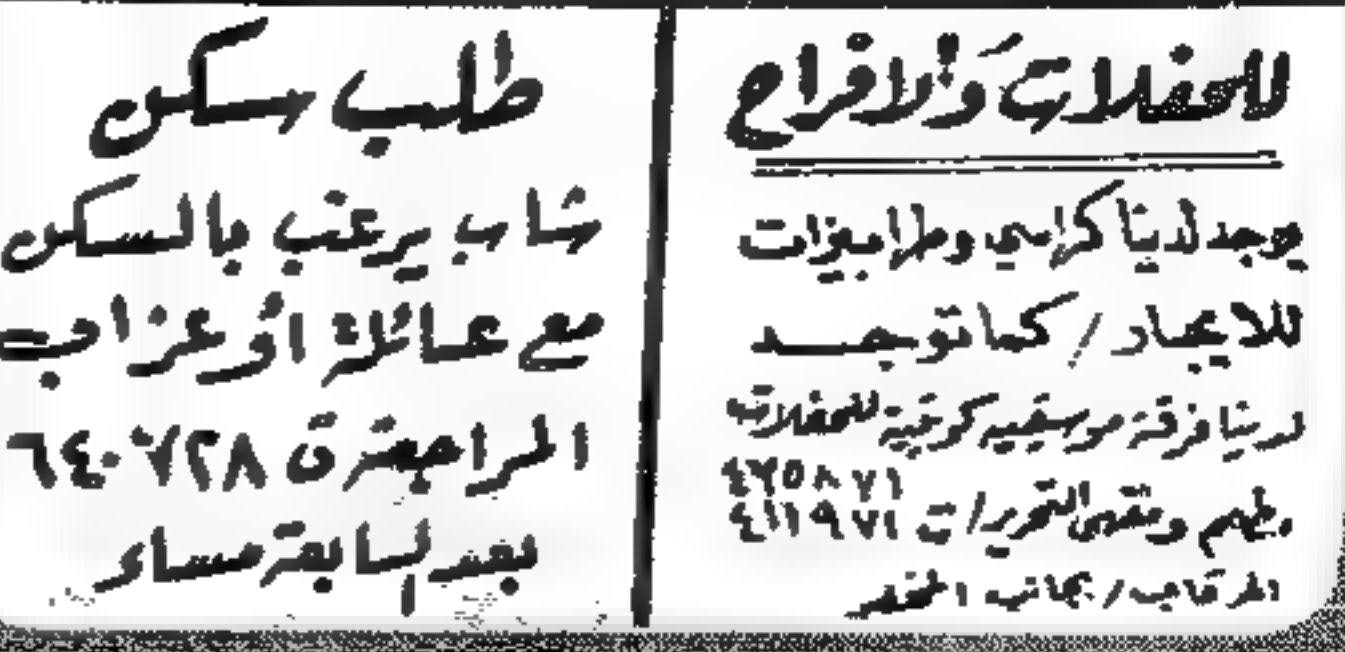 للحفلات والافراح
يوجد لدينا كراسي وطاميزات
للايجار / كما توجد
لدينا فرقة موسيقية كوقية للحفلات
٤٢٥٨٧١
مطعم ومقهى التحرير / ت ٤١١٩٧١
المرقاب / بجانب المخفر
طلب سكن
شاب يرغب بالسكن
مع عائلة أو عزاب
المراجعة ت ٦٤٠٧٢٨
بعد السابعة مساء